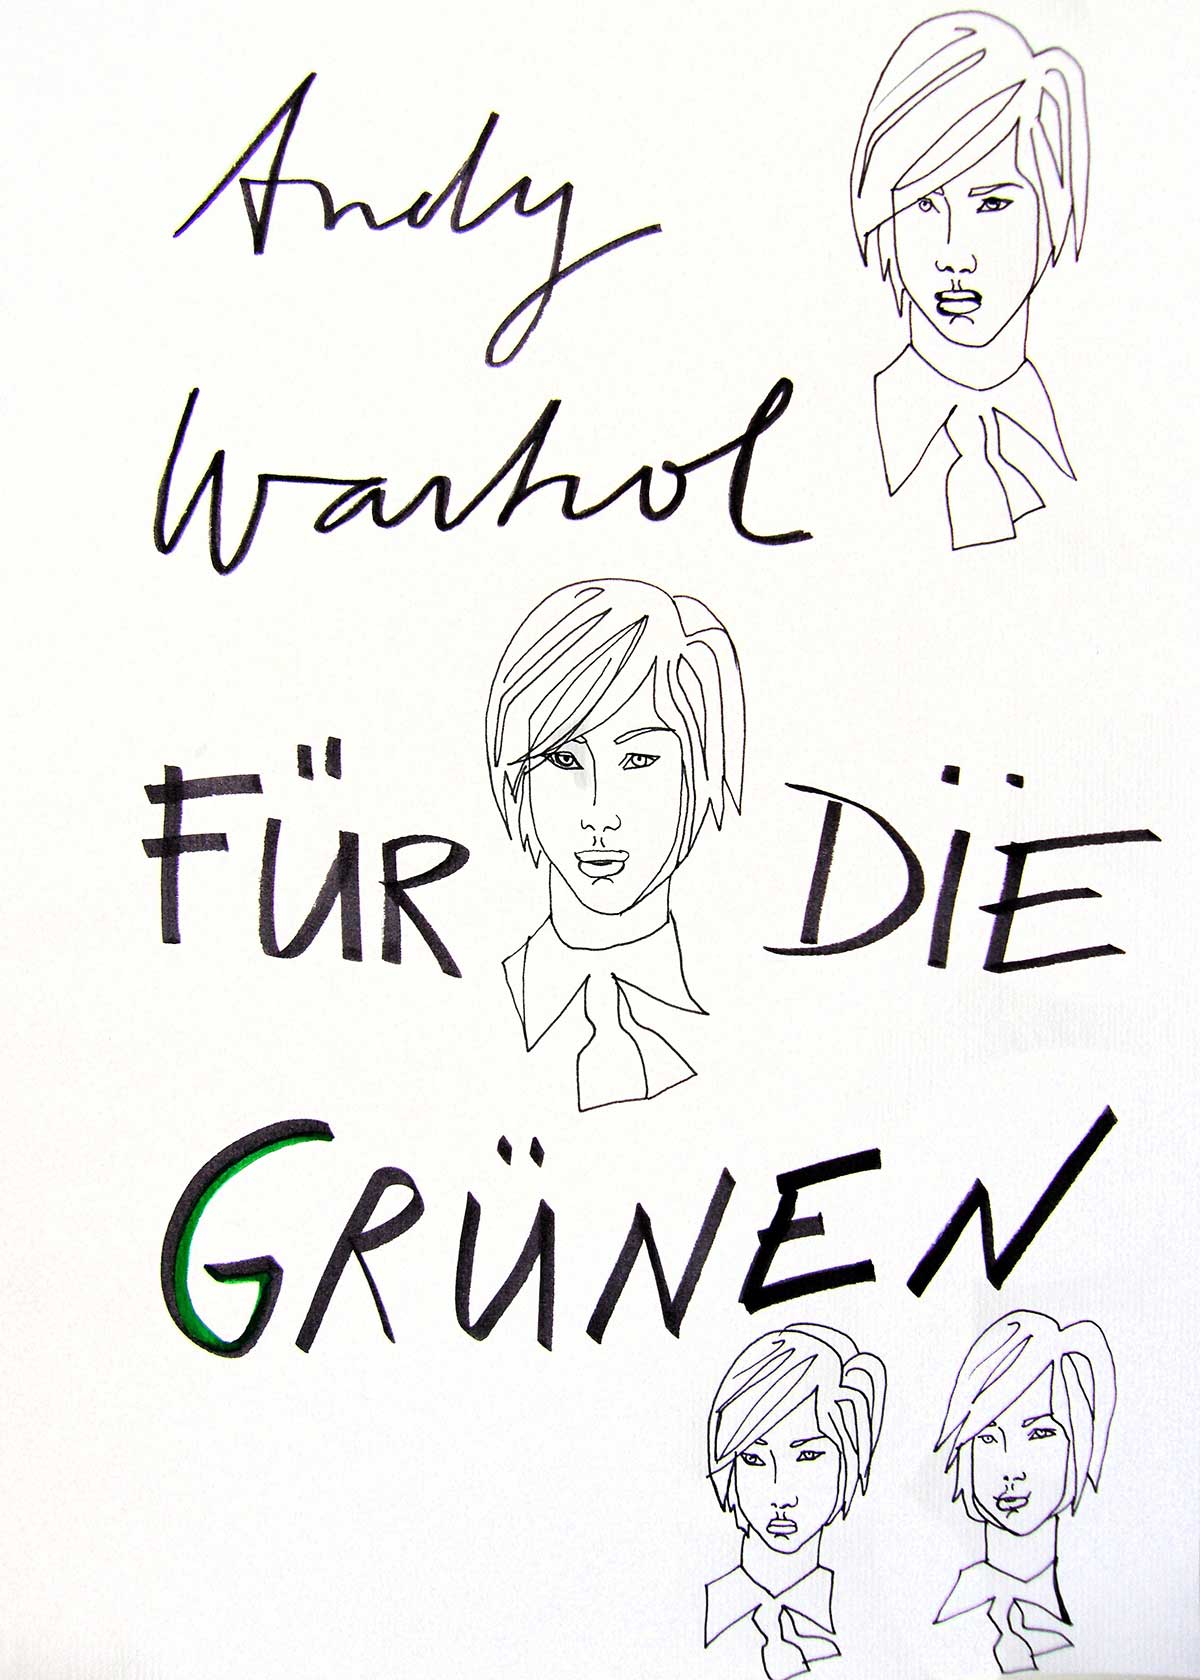 Andy
Warhol
FÜR DÏE
GRÜNEN